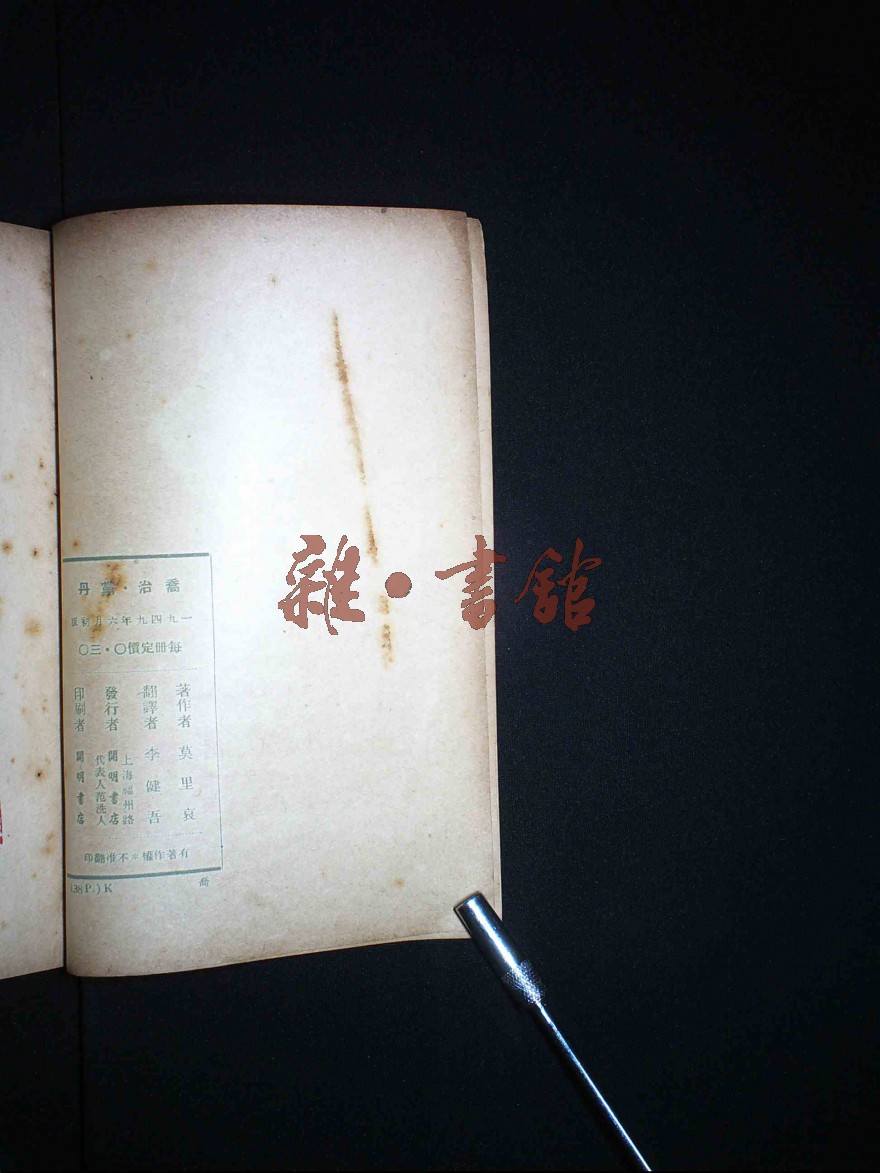 喬治·當丹
一九四九年六月初版
每冊定價〇·三〇
著作者 莫里哀
翻譯者 李健吾
發行者 上海福州路 開明書店 代表人范洗人
印刷者 開明書店
有著作權＊不准翻印
(38P.)K
喬
雜·書館